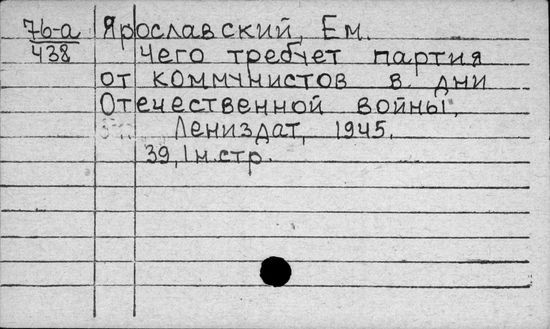 76-а Ярославский, Ем.
438 Чего требует партия
от коммунистов в дни
Отечественной войны.
Лениздат, 1945.
39, 1 н.стр.